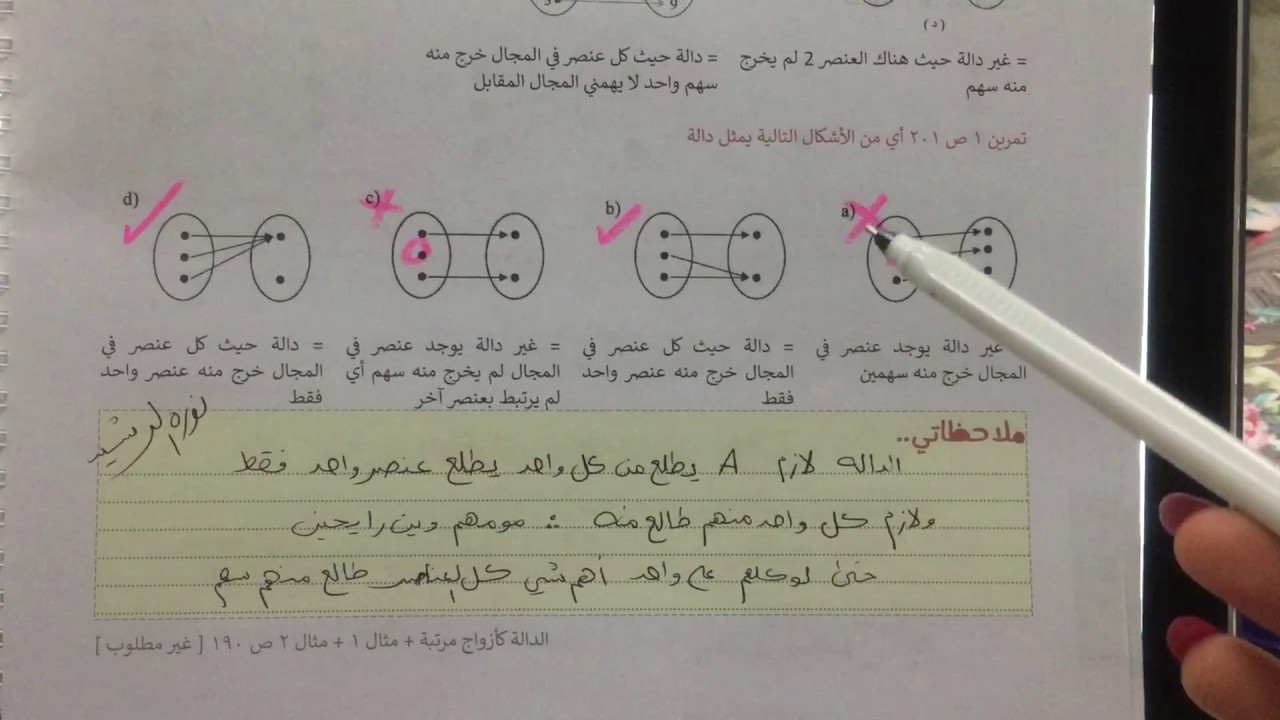 3 9
(د)
= غير دالة حيث هناك العنصر 2 لم يخرج
منه سهم
= دالة حيث كل عنصر في المجال خرج منه
سهم واحد لا يهمني المجال المقابل
تمرين ١ ص ٢٠١ أي من الأشكال التالية يمثل دالة
a)
b)
c)
d)
غير دالة يوجد عنصر في
المجال خرج منه سهمين
= دالة حيث كل عنصر في
المجال خرج منه عنصر واحد
فقط
= غير دالة يوجد عنصر في
المجال لم يخرج منه سهم أي
لم يرتبط بعنصر آخر
= دالة حيث كل عنصر في
المجال خرج منه عنصر واحد
فقط
ملاحظاتي..
الداله لازم A يطلع من كل واحد يطلع عنصر واحد فقط
ولازم كل واحد منهم طالع منه : مومهم وين رايحين
حتى لو كلهم على واحد أهم شي كل العناصر طالع منهم سهم
الدالة كأزواج مرتبة + مثال ١ + مثال ٢ ص ١٩٠ [ غير مطلوب ]